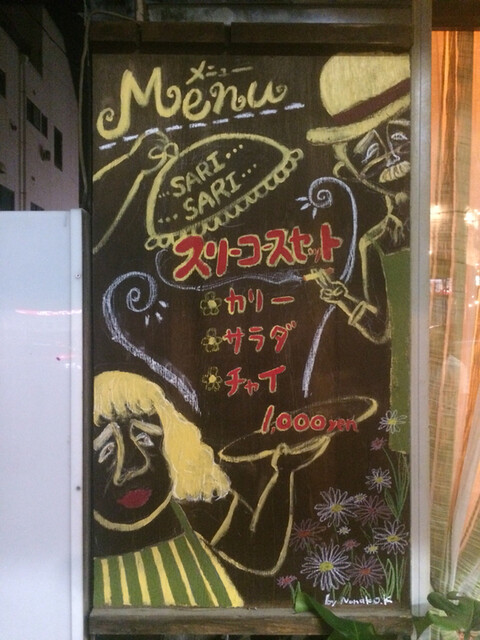 メニュー
Menu
SARI...
...SARI...
スリーコースセット
カリー
サラダ
チャイ
1,000yen
by Nanako.K